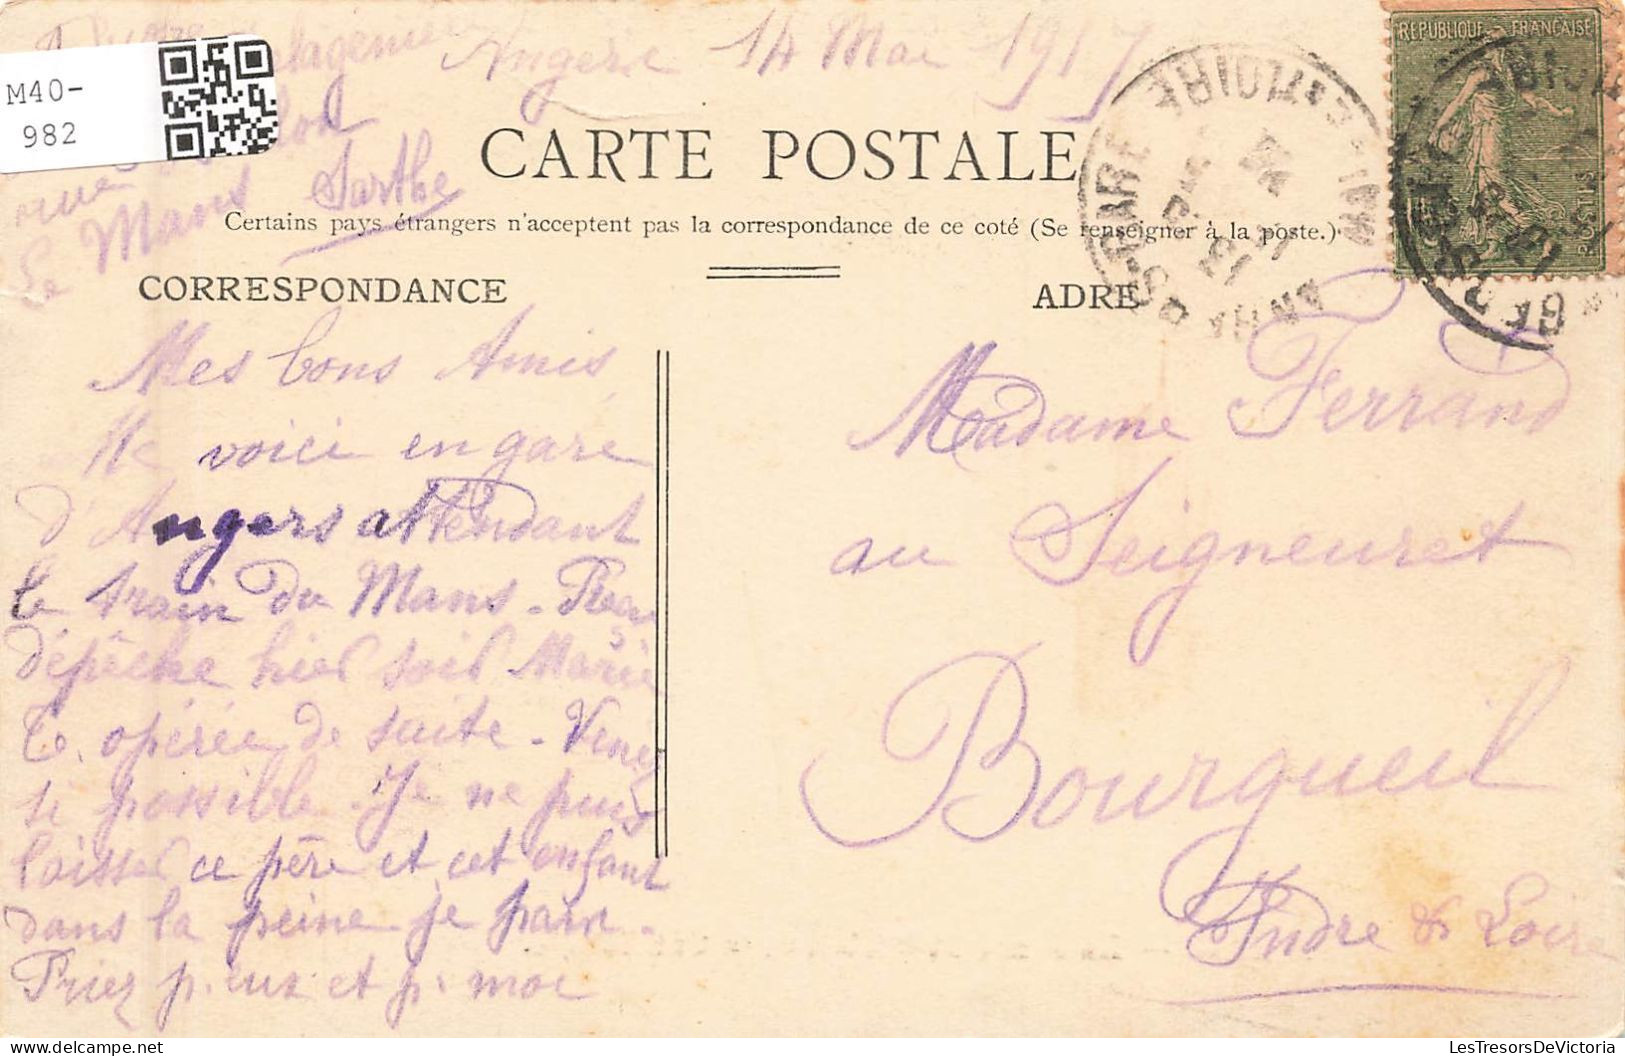 Angers 14 Mai 1917
M40-
982
rue
Le Mans Sarthe
RÉPUBLIQUE FRANÇAISE
POSTES
CARTE POSTALE
Certains pays étrangers n'acceptent pas la correspondance de ce coté (Se renseigner à la poste.)
CORRESPONDANCE
ADRE
Mes bons Amis,
Me voici en gare
d'Angers attendant
le train du Mans - Reçu
dépêche hier soir Marie
T. opérée de suite - Venez
si possible. Je ne puis
laisser ce père et cet enfant
dans la peine je pars.
Priez p. eux et p. moi
Madame Ferrand
au Seigneuret
Bourgueil
Indre & Loire
www.LesTresorsDeVictoria.com